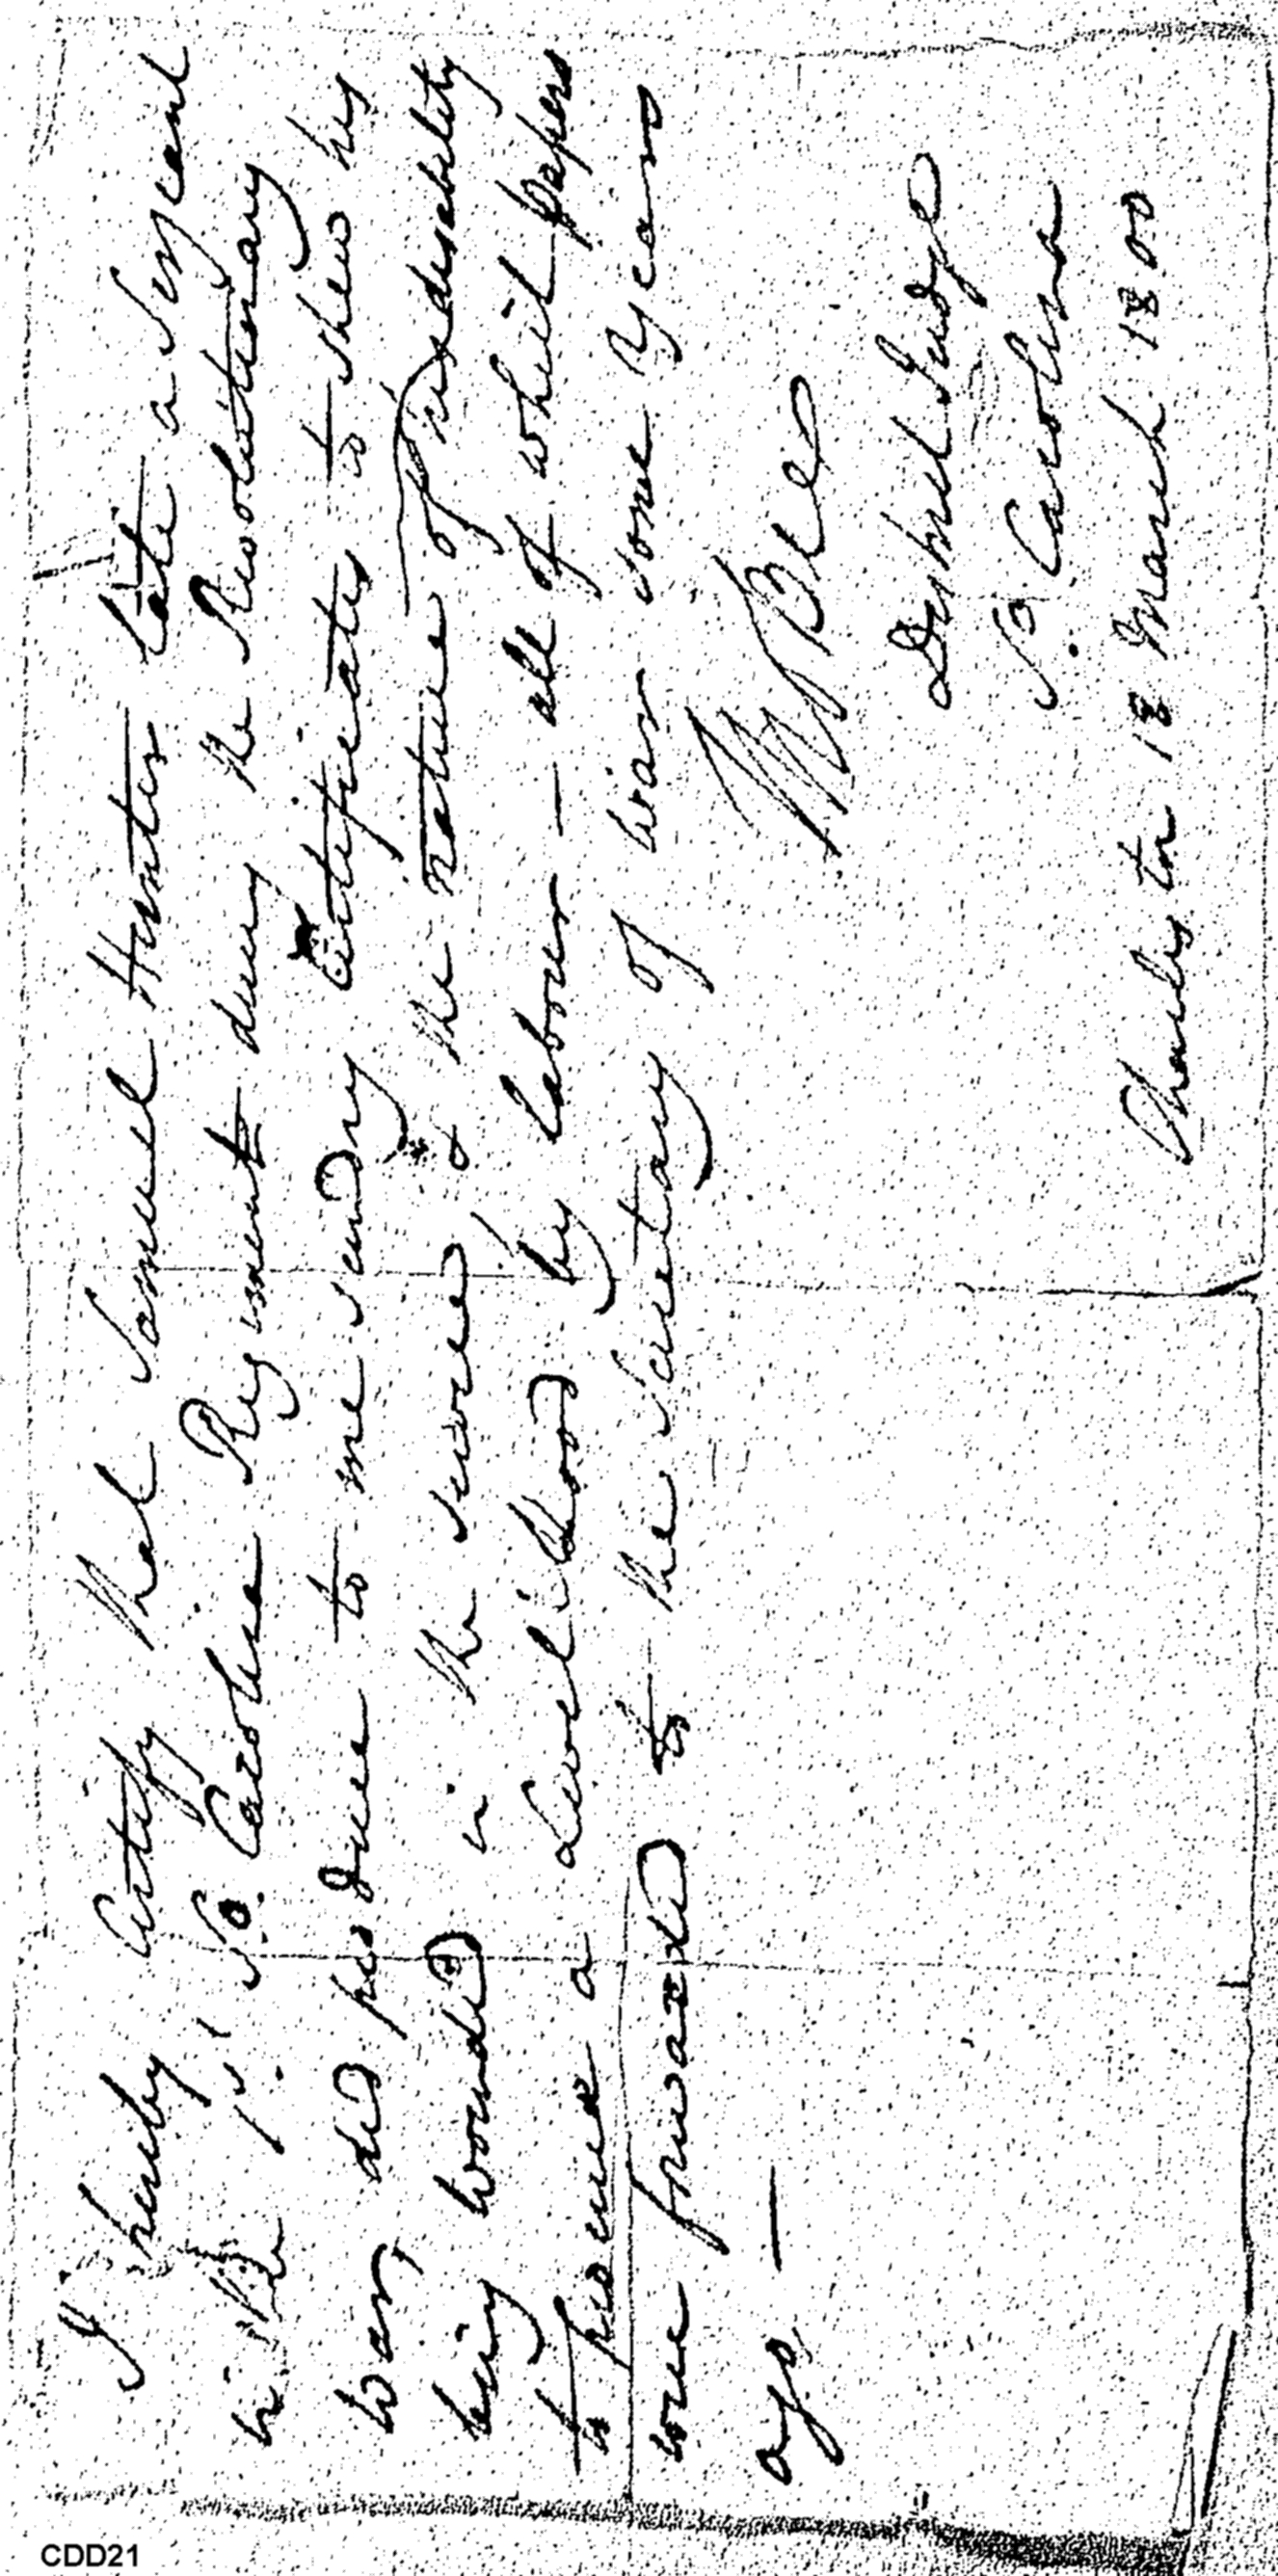 I hereby Certify that Samuel Hunter late a Serjeant
in the 1st So. Carolina Regiment during the Revolutionary
War, did produce to me sundry Certificates to shew his
being wounded in the service, & the nature of his disability
to procure a Livelihood by labour — all of which papers
were forwarded to the Secretary of War some years
ago —
District Judge
So. Carolina
Charleston 18 March 1800
CDD21